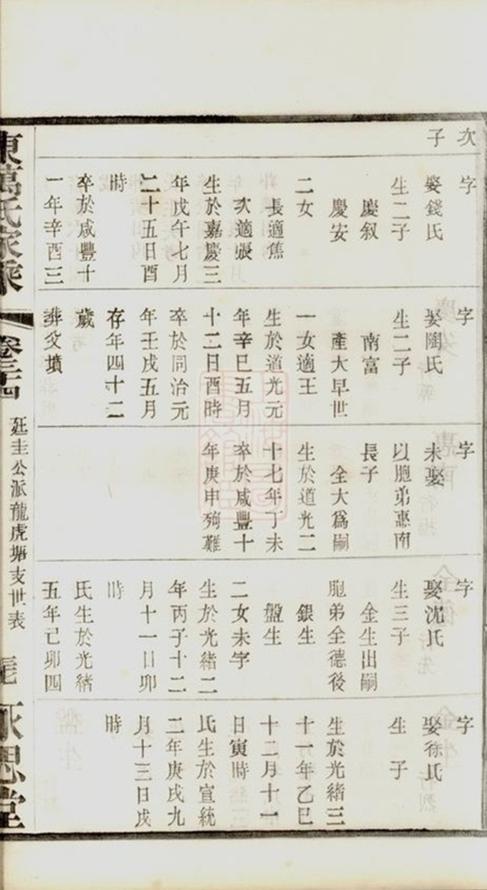 次
子
字
娶錢氏
生二子
慶叙
慶安
二女
長適焦
次適張
生於嘉慶三
年戊午七月
二十五日酉
時
卒於咸豐十
一年辛酉三
字
娶陶氏
生二子
南富
產大早世
一女適王
生於道光元
年辛巳五月
十二日酉時
卒於同治元
年壬戌五月
存年四十二
歲
葬父墳
字
未娶
以胞弟惠南
長子
全大爲嗣
生於道光二
十七年丁未
卒於咸豐十
年庚申殉難
字
娶沈氏
生三子
金生出嗣
胞弟全德後
銀生
盤生
二女未字
生於光緒二
年丙子十二
月十一日卯
時
氏生於光緒
五年己卯四
字
娶徐氏
生 子
生於光緒三
十一年乙巳
十二月十一
日寅時
氏生於宣統
二年庚戌九
月十三日戌
時
東萬氏家乘
卷三十
廷圭公派龍虎塘支世表
永思堂